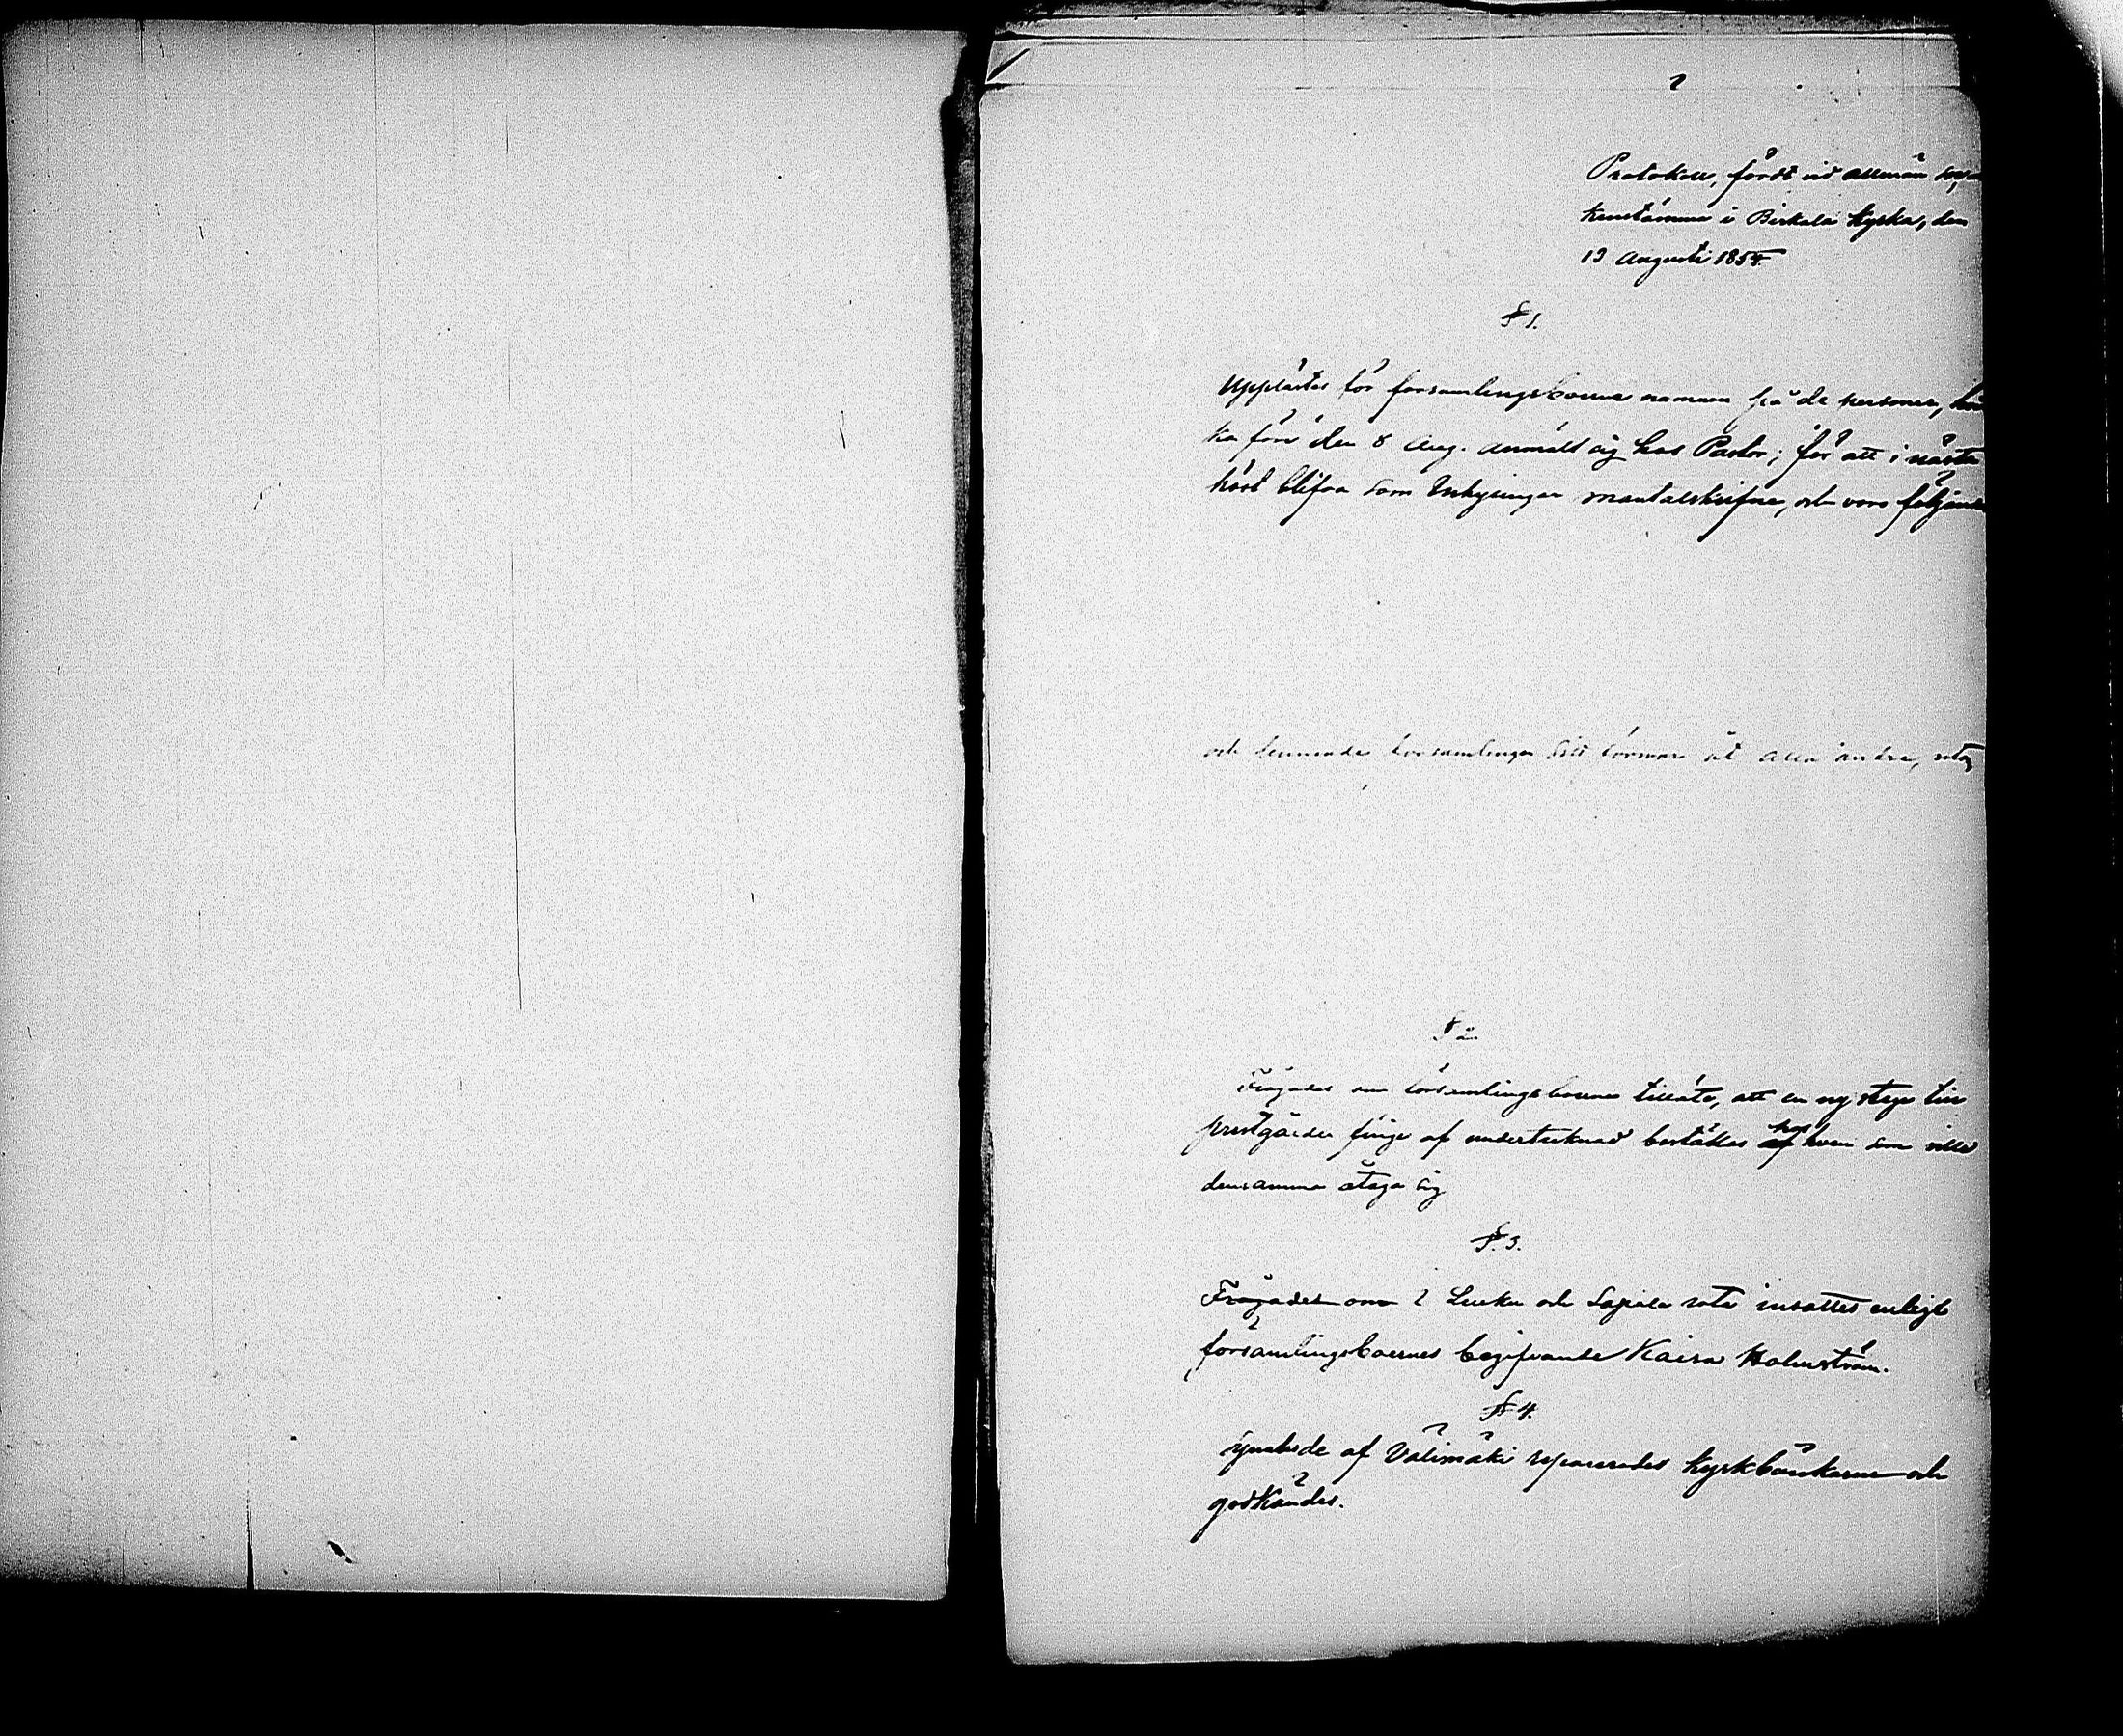 Protokoll, fördt vid allmän soc
kenstämma i Birkala kyrka, den
13 Augusti 1854.
§ 1.
Upplästes för församlingsboerne namnen på de personer, hvil
ka före den 8 Aug. anmält sig hos Pastor, för att i nästa
höst blifva som Inhysingar mantalskrifne, och voro följande
och lemnade församlingen sitt försvar åt alla andra, utom
§ 2.
Frågades om församlingsboerne tilläto, att en ny stege till
prestgården finge af undertecknad beställas hos hvem som ville
densamma åtaga sig
§. 3.
Frågades om I och Sapiala rote insattes enligt
församlingsboernes begifvande Kaisa Holmström.
§ 4.
Synades de af Välimäki reparerades kyrkbänkarne och
godkändes.